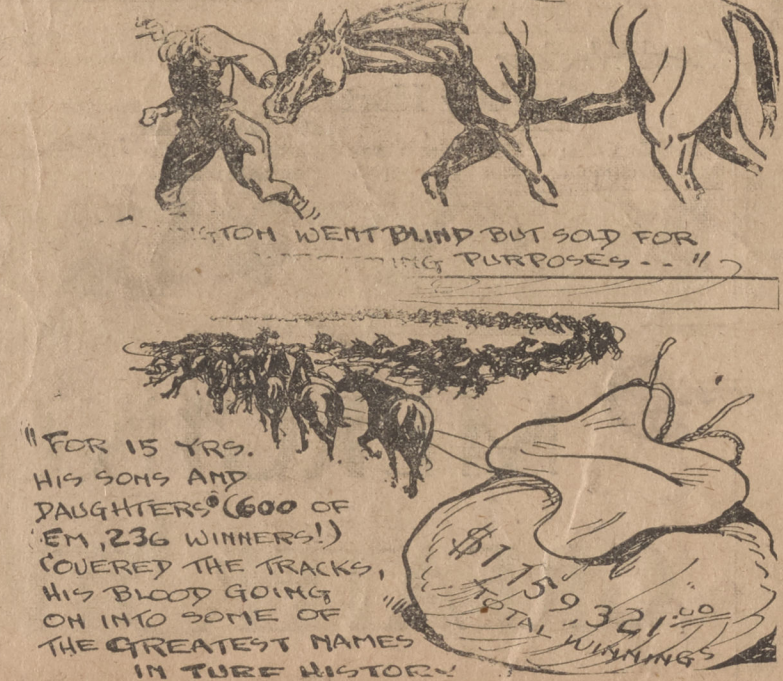 WENT BLIND BUT SOLD FOR
PURPOSES... "
"FOR 15 YRS.
HIS SONS AND
DAUGHTERS (600 OF
'EM, 236 WINNERS!)
COVERED THE TRACKS,
HIS BLOOD GOING
ON INTO SOME OF
THE GREATEST NAMES
IN TURF HISTORY
$1159,321.00
TOTAL WINNINGS